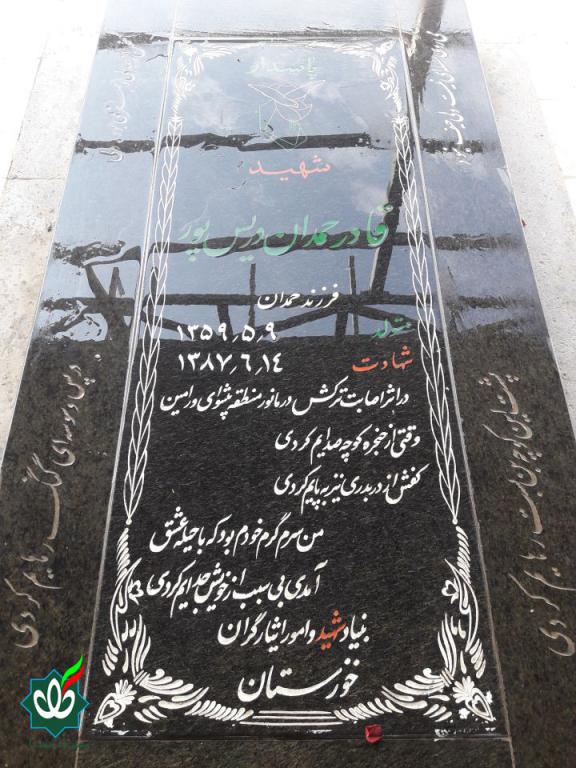 پاسدار
شهید
قادر حمدان دریس پور
فرزند حمدان
متولد ۱۳۵۹،۵،۹
شهادت ۱۳۸۷،۶،۱۴
در اثر اصابت ترکش در مانور منطقه پیشوای ورامین
وقتی از حنجره کوچه صدایم کردی
کفش از دربدری نیز به پایم کردی
من سرم گرم خودم بود که با حیله عشق
آمدی بی سبب از خویش جدایم کردی
بنیاد شهید و امور ایثارگران
خوزستان
پشت این کوچه بن بست رهایم کردی
رهایم کردی